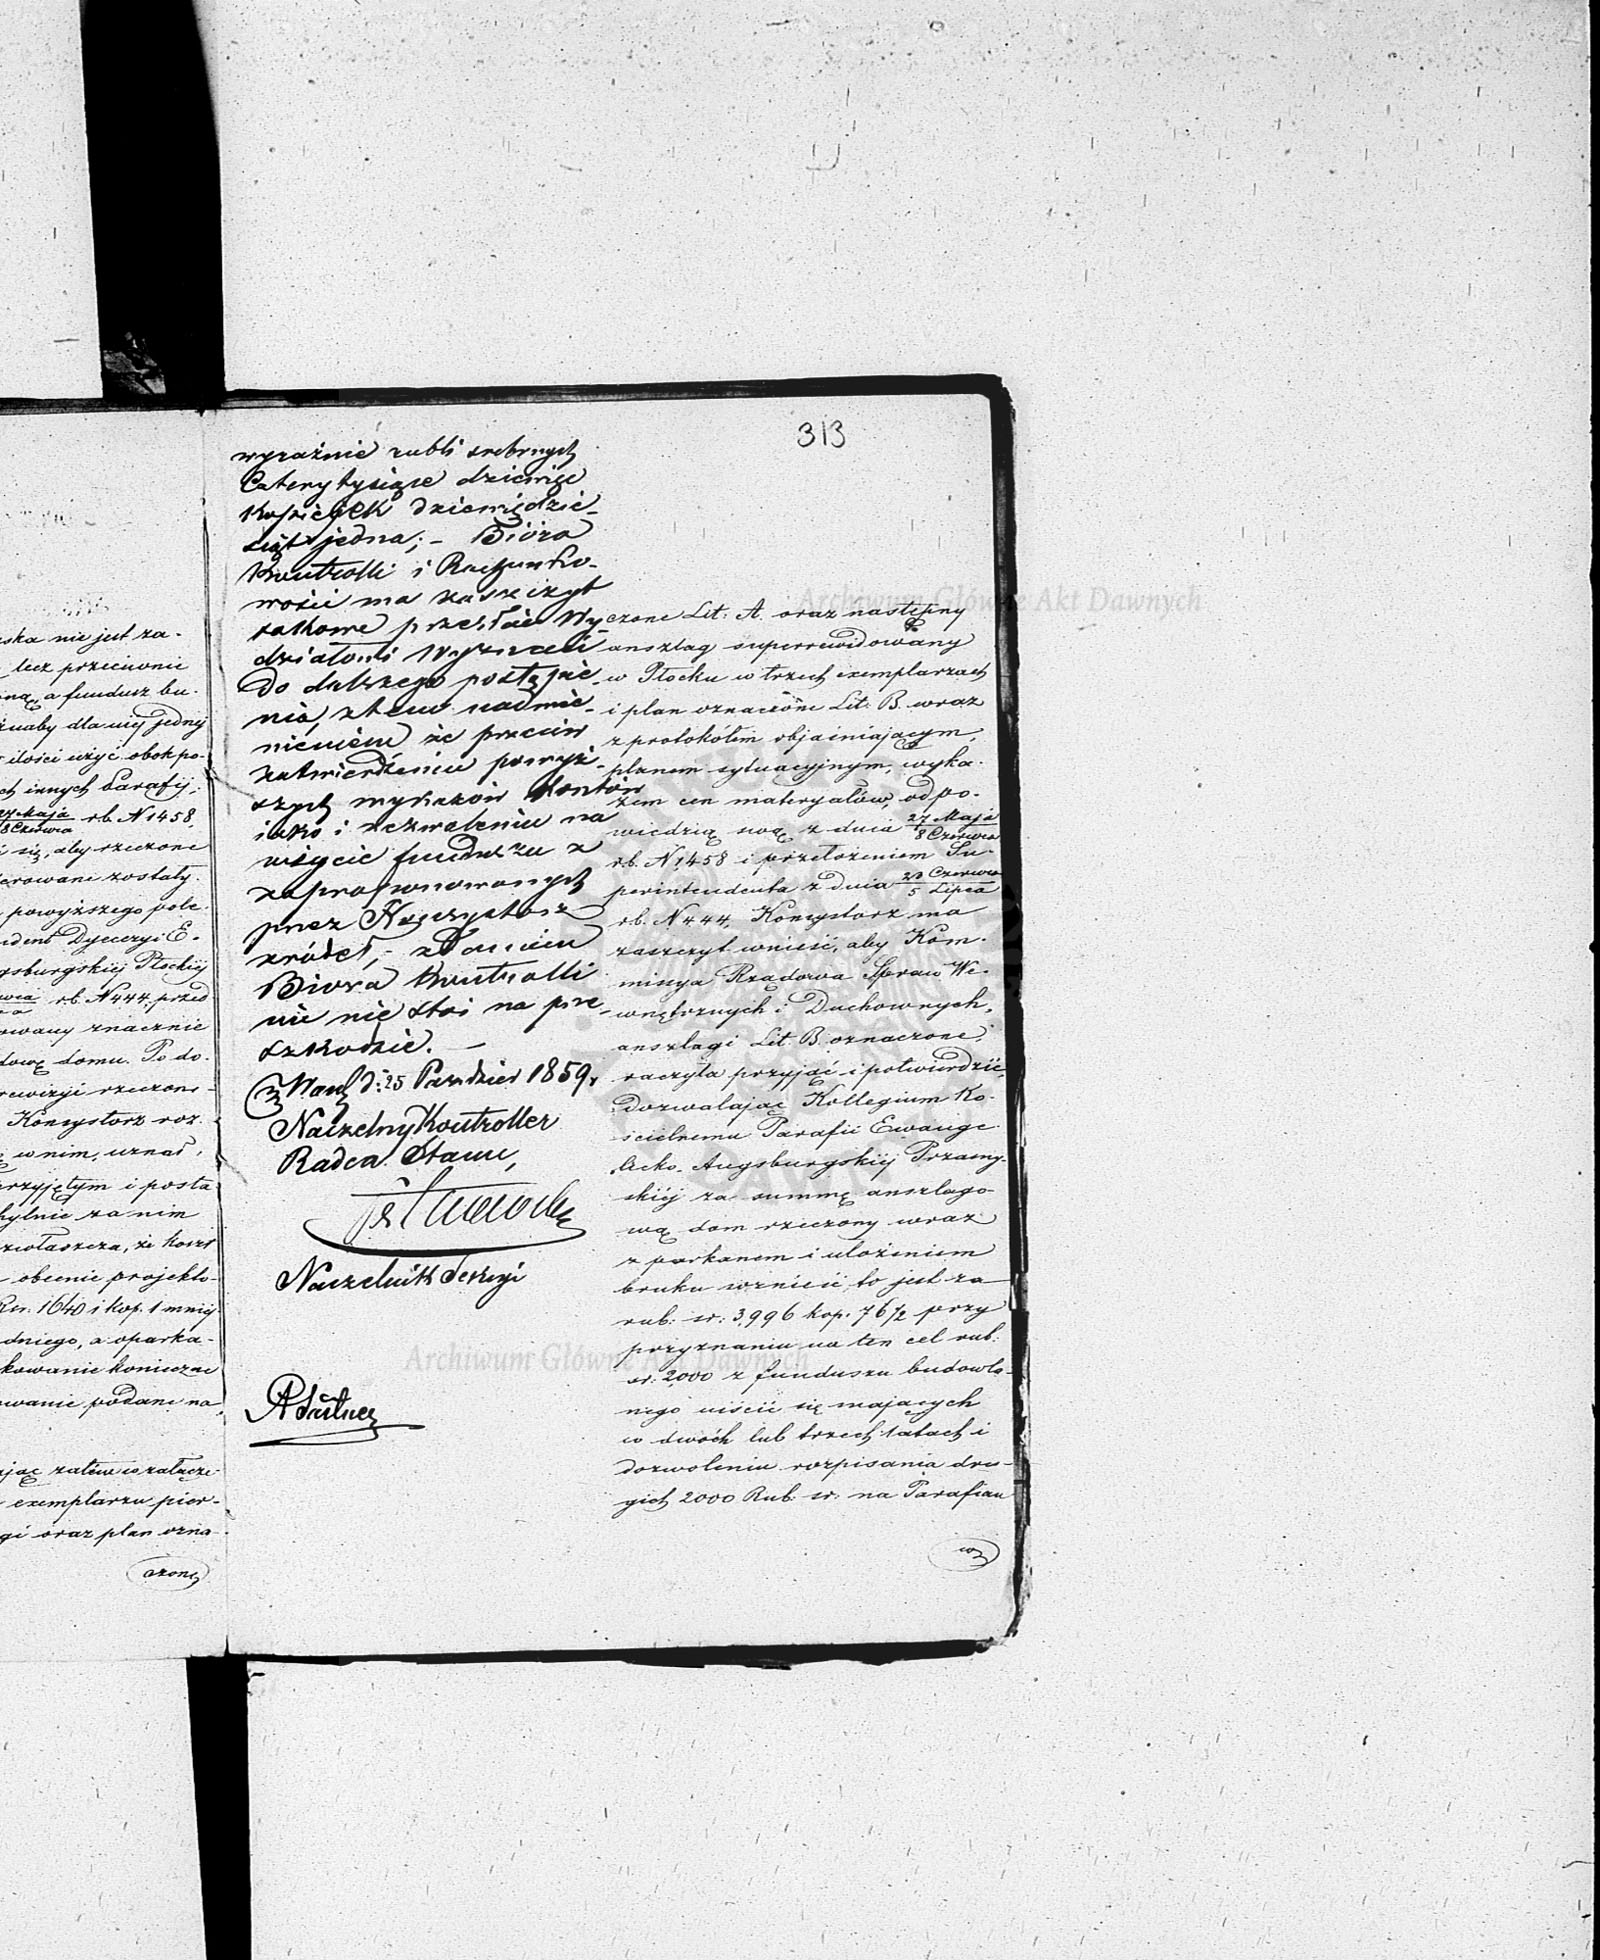 313
ska nie jest za-
lecz przeciwnie
oną, a fundusz bu-
żnaby dla niej jednej
ilości użyć obok po-
ch innych Parafij;
27 Maja
8 Czerwca rb. N 1458,
i się, aby rzeczone
erowane zostały.
powyższego pole-
ident Dyecezyi E-
gsburgskiej Płockiej
rb. N 444, przed
owany znacznie
dowę domu. Po do-
rewizyi rzeczone-
Konsystorz roz-
w nim, uznał,
przyjętym i posta
hylnie za nim
zwłaszcza, że koszt
obecnie projekto-
Rsr. 1640 i kop. 1 mniej
dniego, a oparka-
kowanie konieczne
owanie podane na
jąc zatem w załącze-
exemplarzu pier-
gi oraz plan ozna-
czone
wyraźnie rubli srebrnych
Czterytysiące dziewięć
Kopiejek dziewiędzie-
siąt jedna; – Bióro
Kontrolli i Rachunko-
wości ma zaszczyt
takowe przesłać Wy-
działowi Wyznań
do dalszego postąpie-
nia, z tem nadmie-
nieniem że przeciw
zatwierdzeniu powyż-
szych wykazów kosztów
jako i zezwoleniu na
użycie funduszu z
zaproponowanych
przez Konsystorz
źródeł, – zdaniem
Bióra Kontrolli
nic nie stoi na prze-
szkodzie. –
w Warsz d: 25 Paździer 1859 r
Naczelny Kontroller
Radca Stanu,
Naczelnik Sekcyi
czone Lit: A. oraz następny
anszlag superrewidowany
w Płocku w trzech exemplarzach
i plan oznaczone Lit: B. wraz
z protokółem objaśniającym,
planem sytuacyjnym, wyka-
zem cen materyałów, odpo-
wiedzią swą z dnia 27 Maja
8 Czerwca
rb. N 1458 i przełożeniem Su-
perintendenta z dnia 23 Czerwca
5 Lipca
rb. N 444, Konsystorz ma
zaszczyt wnieść, aby Kom-
missya Rządowa Spraw We-
wnętrznych i Duchownych,
anszlagi Lit. B. oznaczone,
raczyła przyjąć i potwierdzić,
dozwalając Kollegium Ko-
ścielnemu Parafii Ewange
licko-Augsburgskiej Przasny-
skiej za summę anszlago-
wą dom rzeczony wraz
z parkanem i ułożeniem
bruku wznieść, to jest za
rub: sr: 3,996 kop. 76 1/2 przy
przyznaniu na ten cel rub:
sr: 2,000 z funduszu budowla-
nego uiścić się mających
w dwóch lub trzech latach i
dozwoleniu rozpisania dru-
gich 2000 Rub: sr: na Parafian
w
Archiwum Główne Akt Dawnych
Archiwum Główne Akt Dawnych